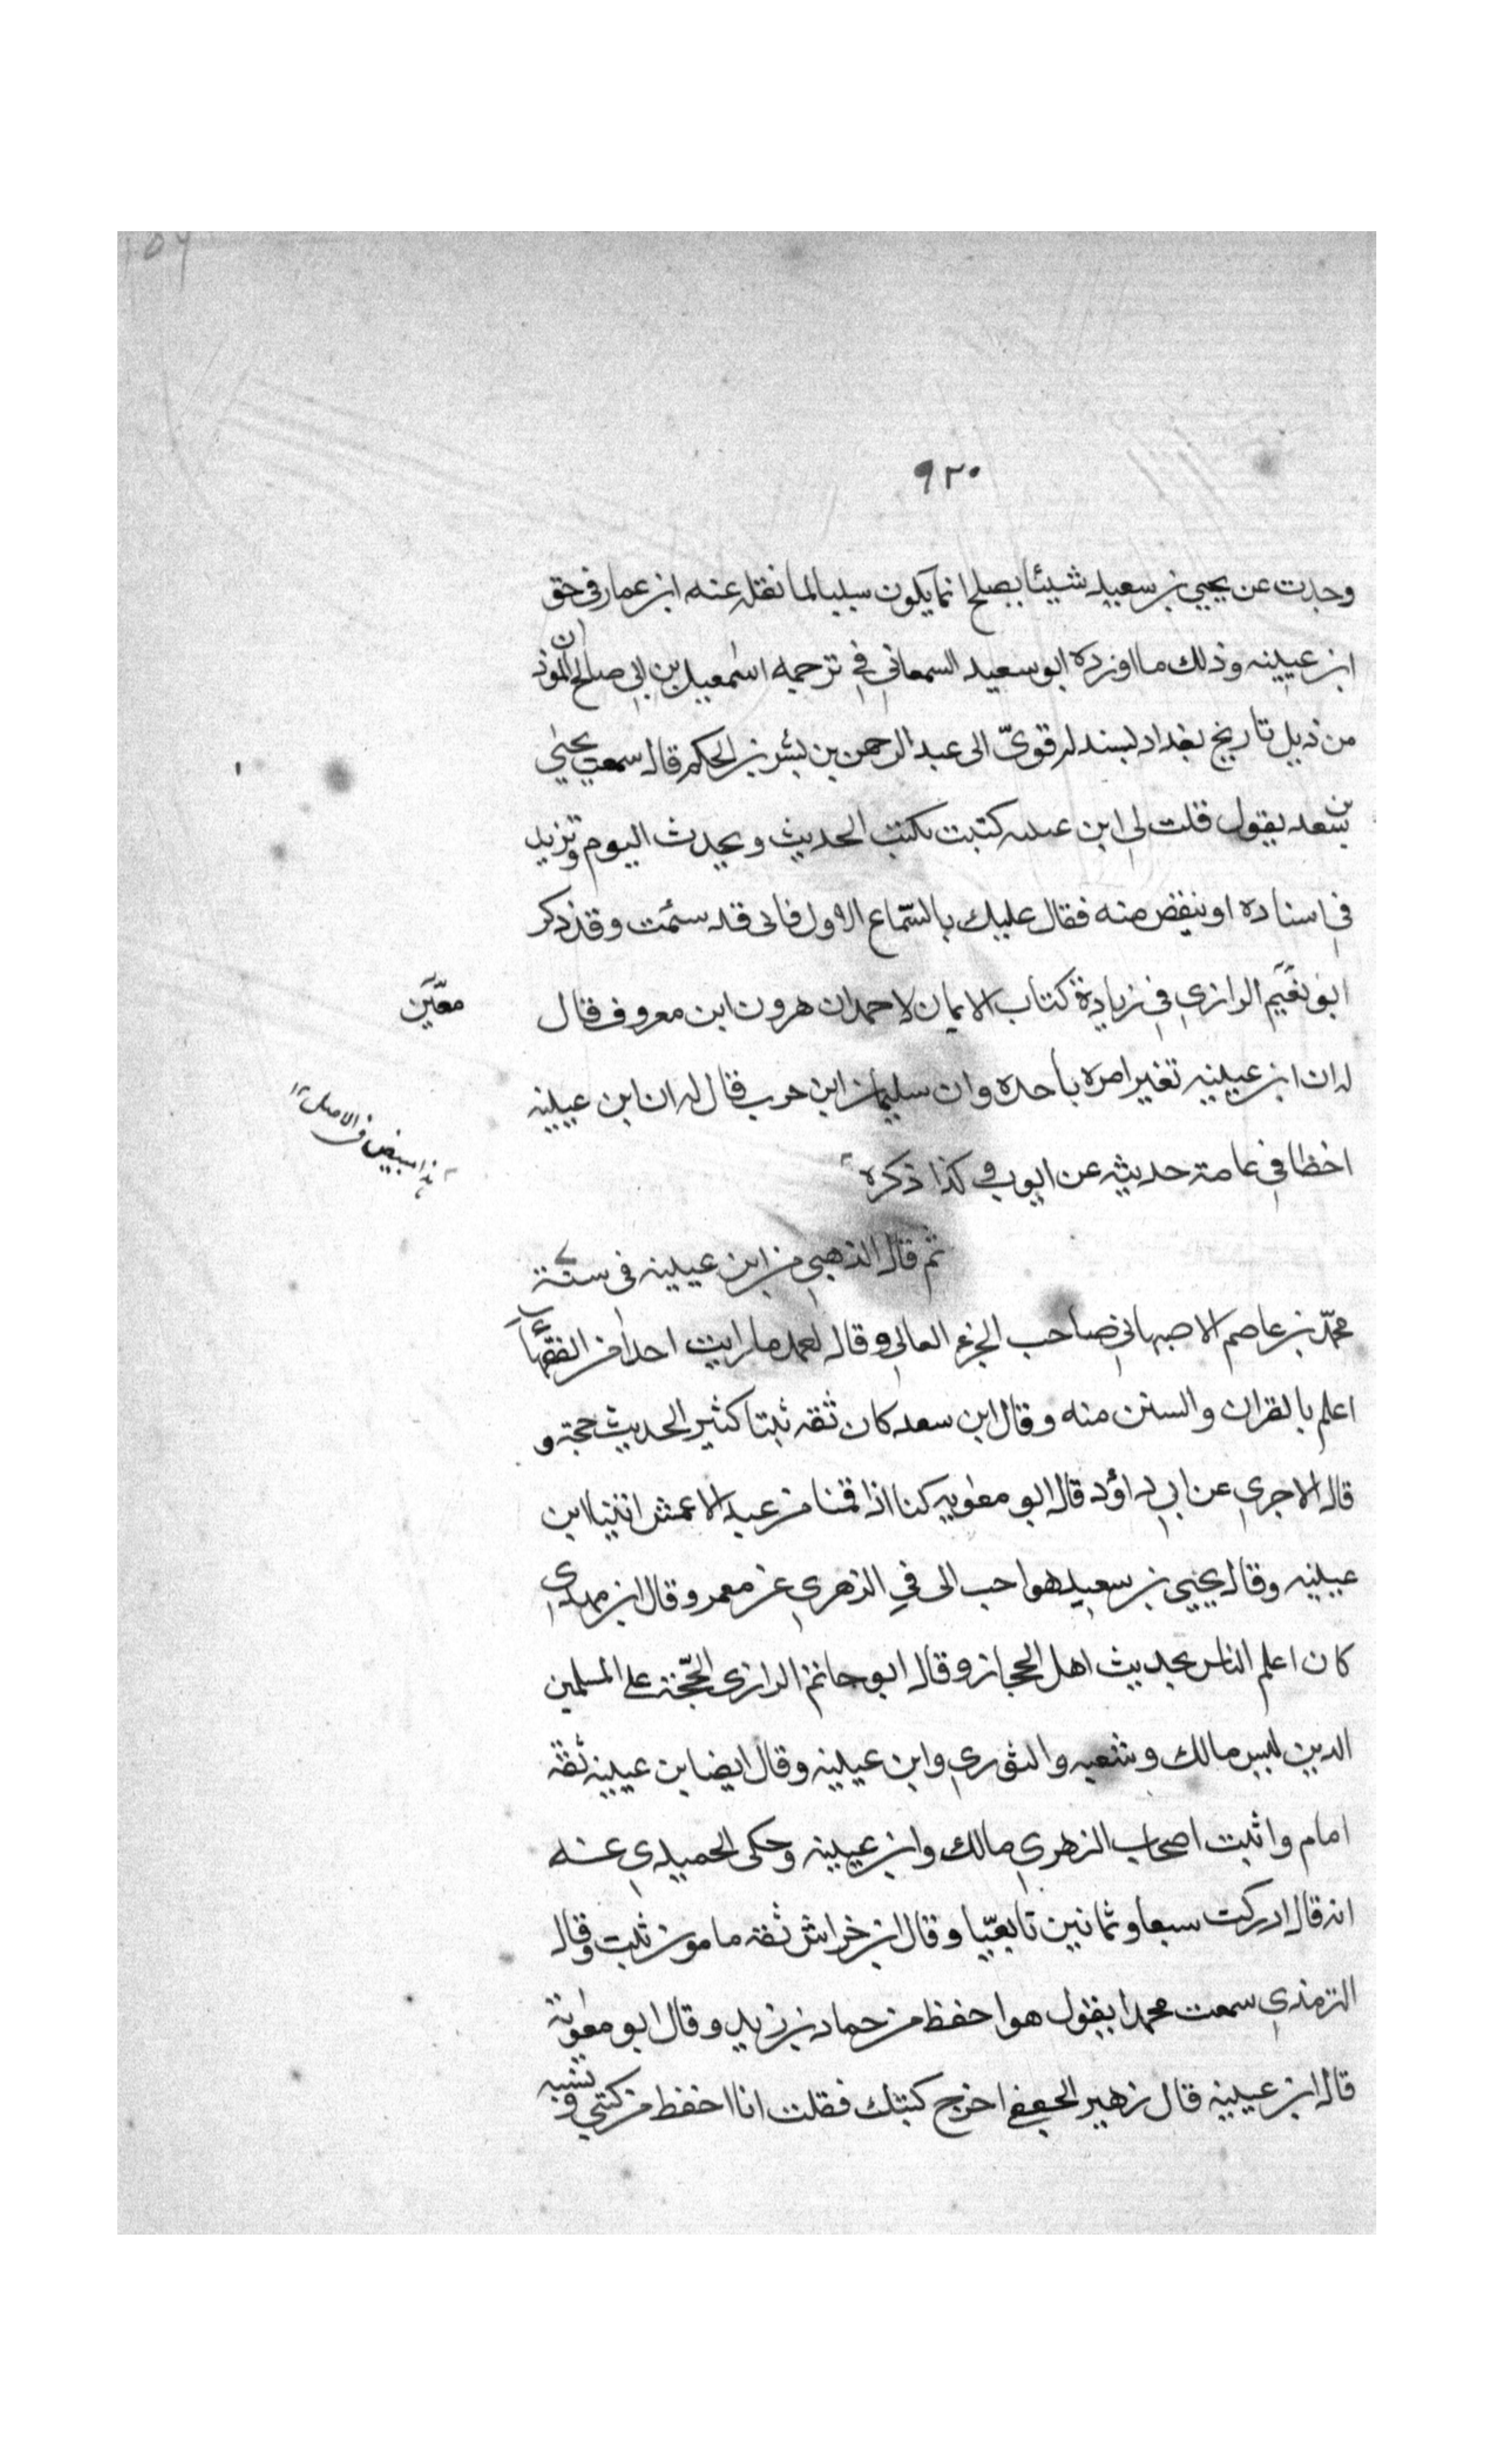 ٩٢٠
وجدت عن يحيى بن سعيد شيئا يصلح انما يكون سببا لما نقله عنه ابن عمار في حق
ابن عيينه وذلك ما اورده ابو سعيد السمعاني في ترجمه اسمعيل بن ابي صالح الموذن
من ذيل تاريخ بغداد بسند له قويّ الى عبد الرحمن بن بشر بن الحكم قال سمعت يحيى
بن سعد يقول قلت لى ابن عيينه كتبت تكتب الحديث و يحدث اليوم وتزيد
في اسناده او ينقص منه فقال عليك بالسّماع الاول فانى قد سئمت وقد ذكر
ابو نعَيم الرازي في زيادة كتاب الايمان لاحمد ان هرون ابن معروف قال
معَّين
له ان ابن عيينه تغير امره باخره وان سليمان ابن حرب قال له ان ابن عيينه
اخطا في عامة حديثه عن ايوب كذا ذكره
هذا بيض في الاصل ١٢
ثم قال الذهبي من ابن عيينه في سنة
محمّد بن عاصم الاصبهاني صاحب الجزء العالي وقال احمد ما رايت احدا من الفقهاء
اعلم بالقران والسنن منه وقال ابن سعد كان ثقه ثبتا كثير الحديث حجة و
قال الاجري عن ابي داؤد قال ابو معٰويه كنا اذا قمنا من عبد الاعمش اتينا ابن
عيينه وقال يحيى بن سعيد هو احب الى في الزهري عن معمر وقال ابن مهدي
كان اعلم الناس بحديث اهل الحجاز وقال ابو حاتم الرازى الحجّة على المسلمين
الذين ليس مالك وشعبه والثوري وابن عيينه وقال ايضا بن عيينه ثقة
امام واثبت اصحاب الزهري مالك وابن عيينه وحكى الحميدي عنه
انه قال ادركت سبعا وثمانين تابعيّا وقال ابن خراش ثقه مامون ثبت وقال
الترمذي سمعت محمدا يقول هو احفظ من حماد بن زيد وقال ابو معٰوية
قال ابن عيينه قال زهير الجعفي اخرج كتبك فقلت انا احفظ من كتبي و